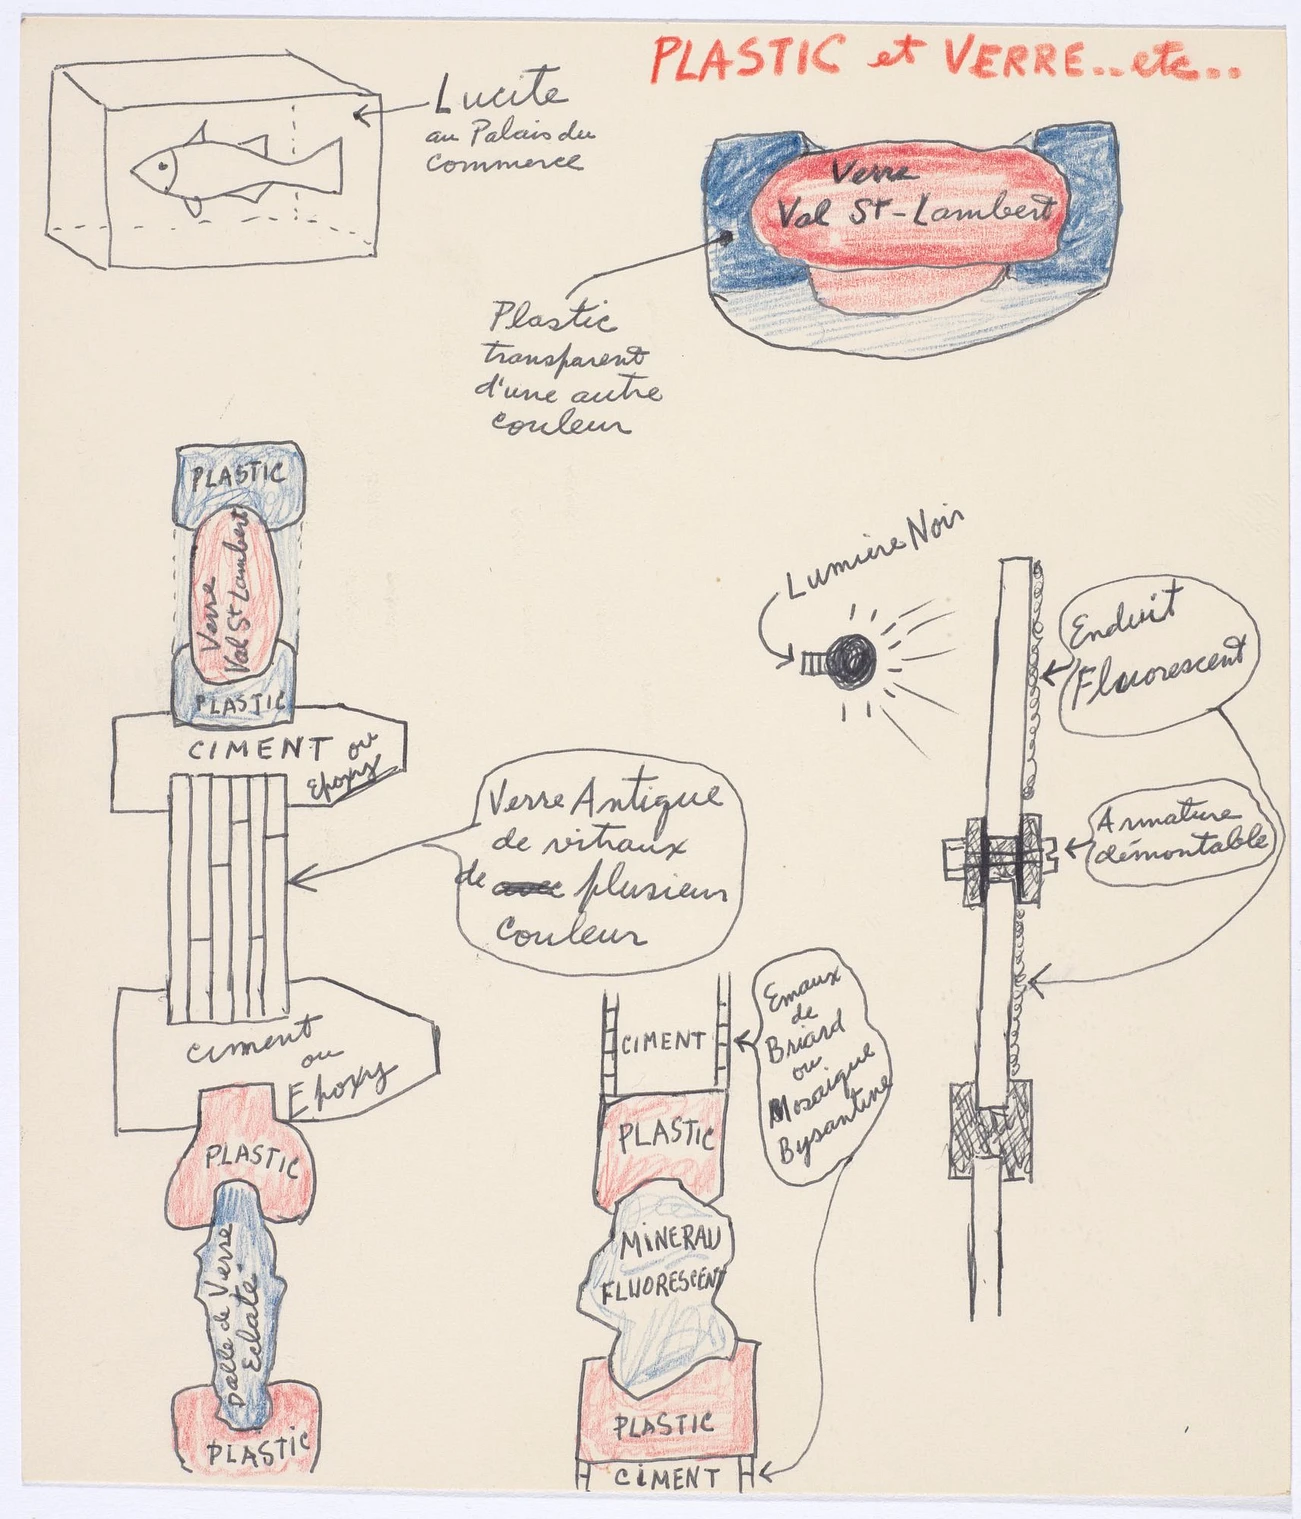 PLASTIC et VERRE..etc..
Lucite
au Palais du
Commerce
Verre
Val St-Lambert
Plastic
transparent
d'une autre
couleur
PLASTIC
Verre
Val St Lambert
PLASTIC
CIMENT ou
Epoxy
Verre Antique
de vitraux
de avec plusieur
Couleur
Ciment
ou
Epoxy
PLASTIC
Dalle de Verre
Eclaté
PLASTIC
Lumière Noir
Enduit
Fluorescent
Armature
démontable
Emaux
de
Briard
ou
Mosaique
Bysantine
CIMENT
PLASTIC
MINERAU
FLUORESCENT
PLASTIC
CIMENT